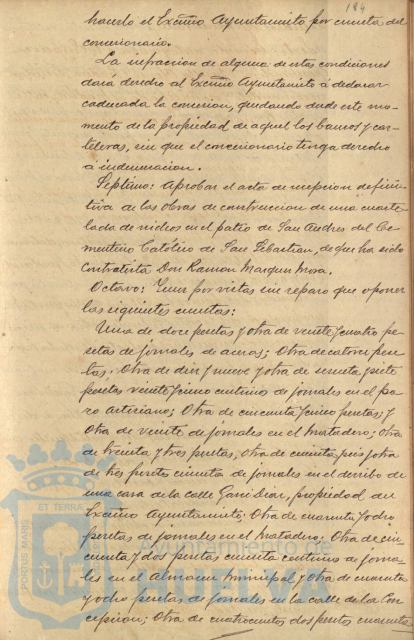 184
hacerlo el Excmo Ayuntamiento por cuenta del
concesionario.
La infraccion de alguna de estas condiciones
dará derecho al Excmo Ayuntamiento á declarar
caducada la concesion, quedando desde este mo-
mento de la propiedad de aquel los bancos y car-
teleras, sin que el concesionario tenga derecho
á indemnizacion.
Septimo: Aprobar el acta de recepcion defini-
tiva de las obras de construccion de una cuarte-
lada de nichos en el patio de San Andres del Ce-
menterio Católico de San Sebastian, de que ha sido
Contratista Don Ramon Marquez Mora.
Octavo: Tener por vistas sin reparo que oponer
las siguientes cuentas:
Una de doce pesetas y otra de veinte y cuatro pe-
setas de jornales de aceras; Otra de catorce pese-
tas. Otra de diez y nueve y otra de setenta y siete
pesetas veinte y cinco centimos de jornales en el po-
zo Artesiano; Otra de cincuenta y cinco pesetas; y
Otra de veinte de jornales en el Matadero; Otra
de treinta y tres pesetas, Otra de cuarenta y seis y otra
de tres pesetas cincuenta de jornales en el derribo de
una casa de la calle Garci Diaz, propiedad del
Excmo Ayuntamiento; Otra de cuarenta y ocho
pesetas de jornales en el Matadero; Otra de cin-
cuenta y dos pesetas cincuenta centimos de jorna-
les en el Almacen Municipal y otra de cuarenta
y ocho pesetas de jornales en la calle de la Con-
cepcion; Otra de cuatrocientas dos pesetas cincuenta
ET TERRA
PORTUS MARIS
Ayuntamiento de